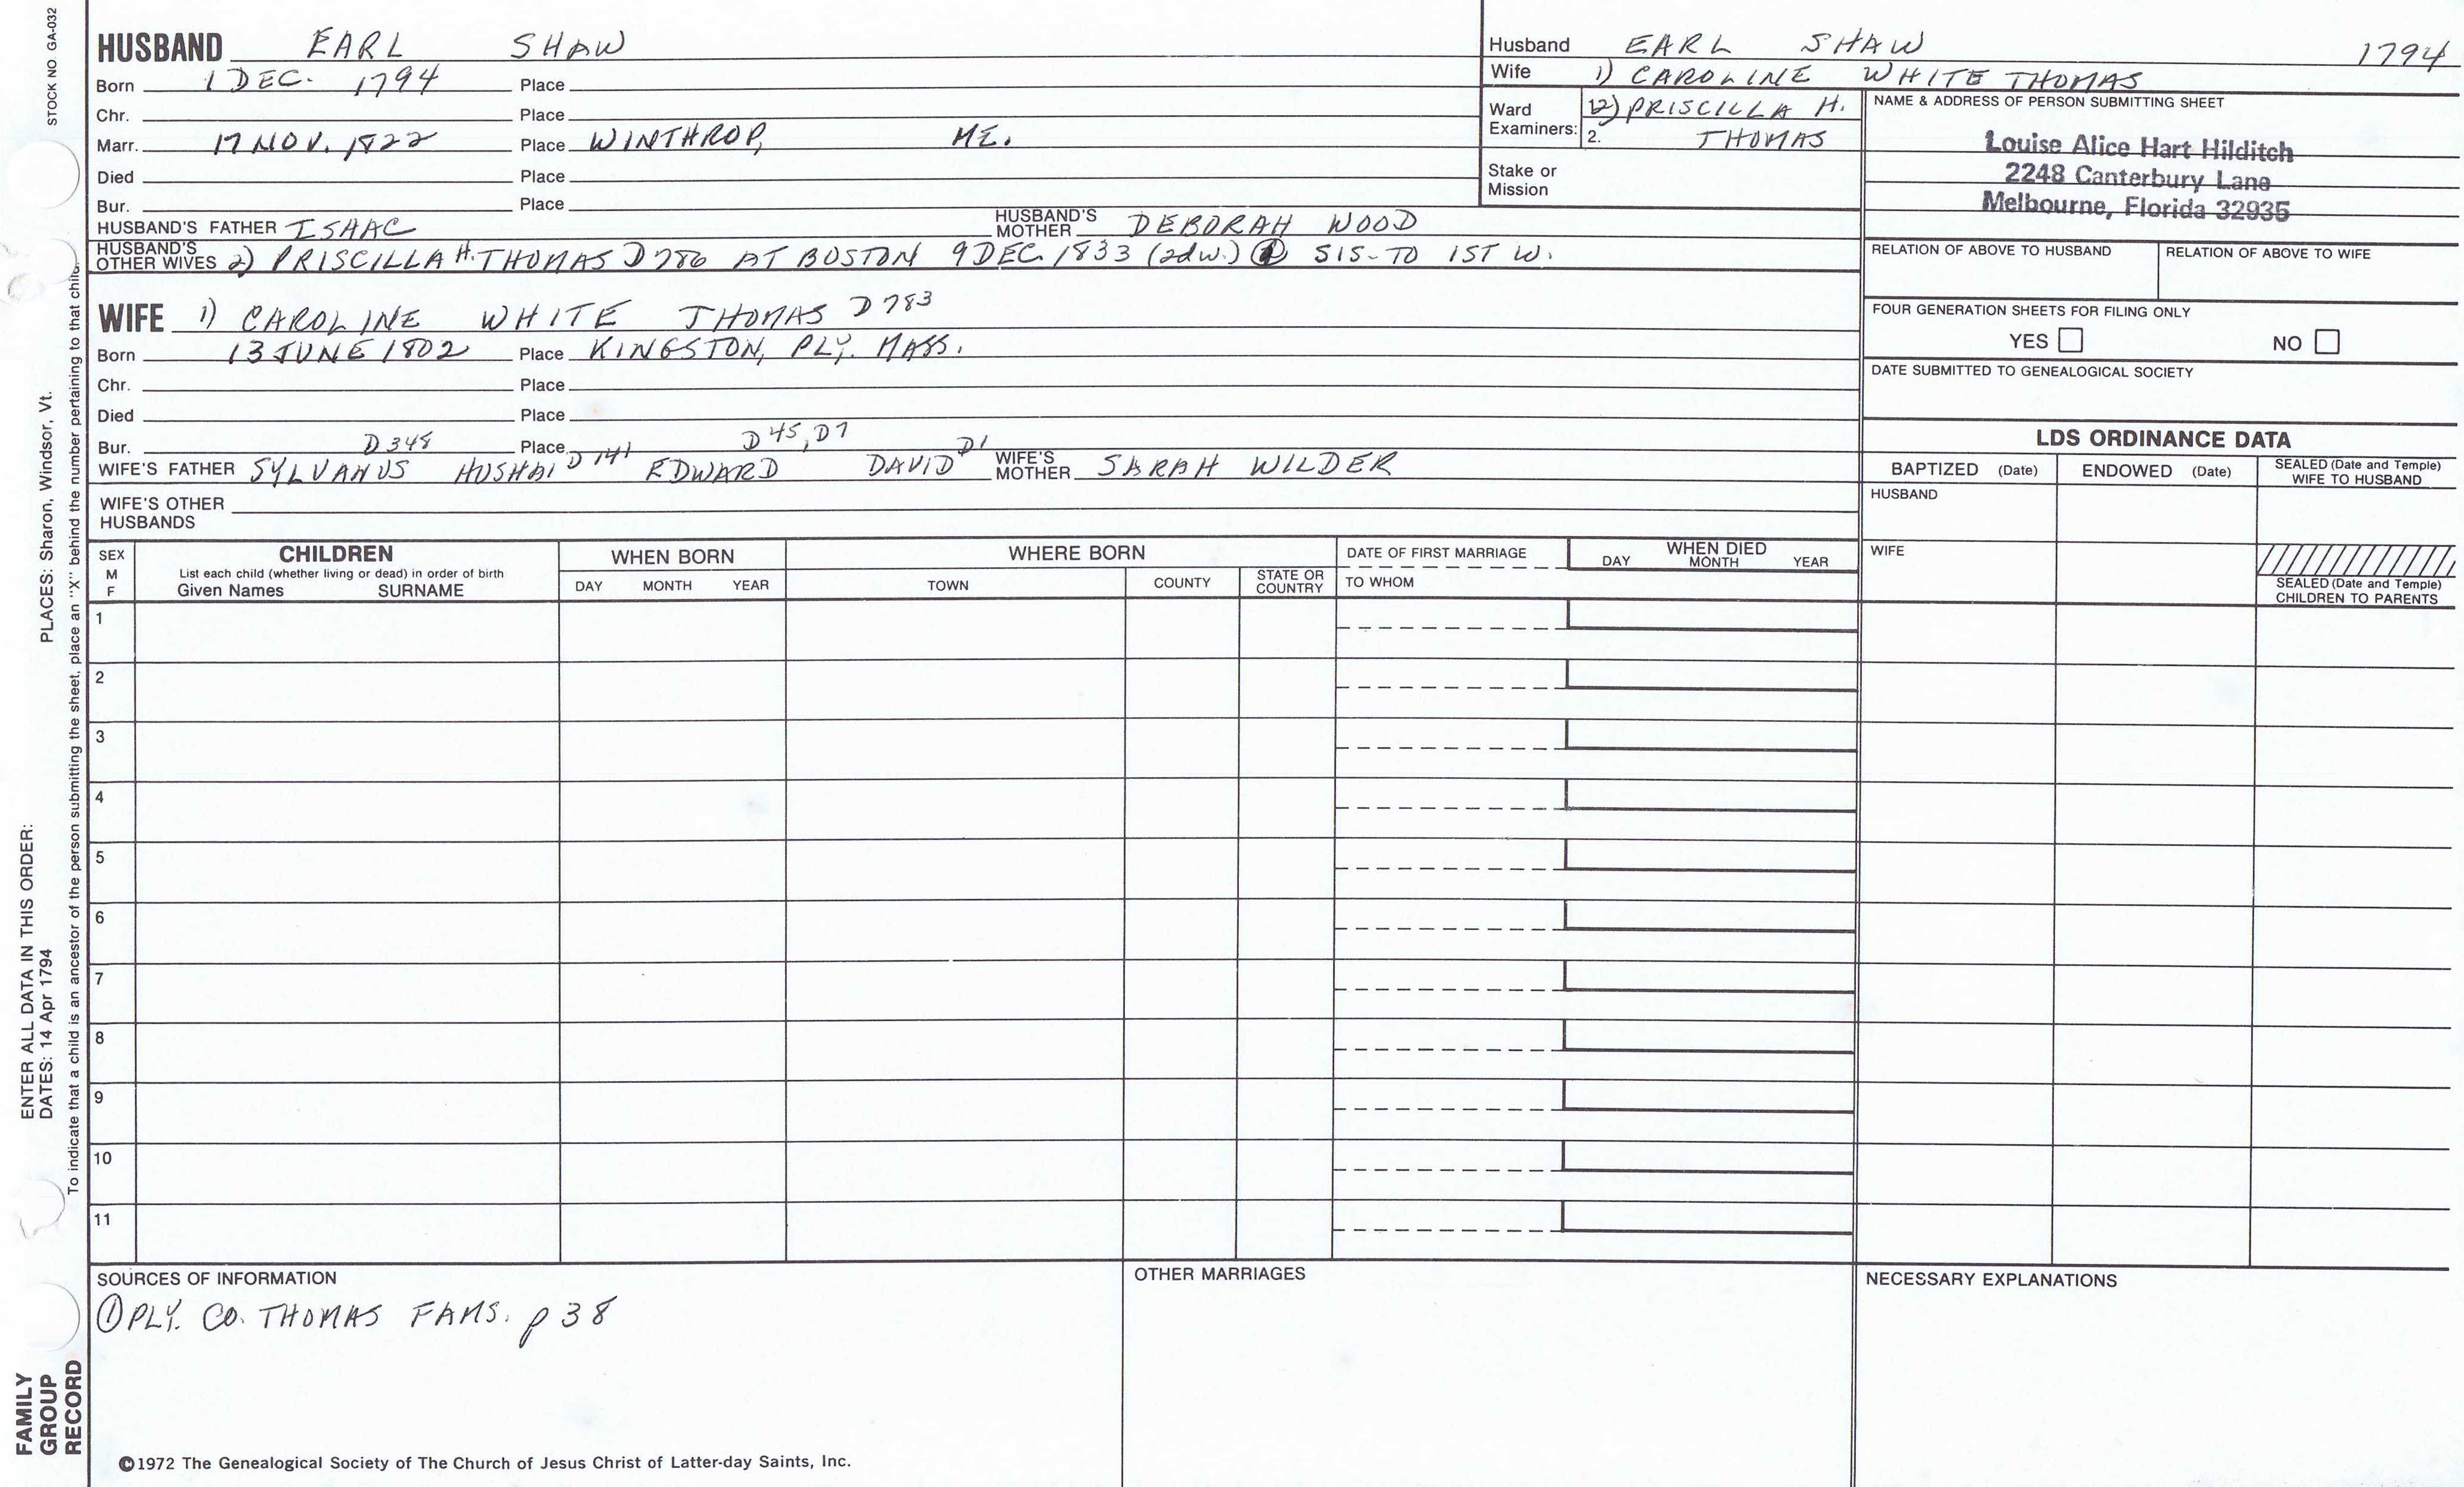 STOCK NO. GA-032
HUSBAND EARL SHAW
Born 1 DEC. 1794 Place
Chr. Place
Marr. 17 NOV. 1822 Place WINTHROP, ME.
Died Place
Bur. Place
HUSBAND'S FATHER ISAAC HUSBAND'S MOTHER DEBORAH WOOD
HUSBAND'S OTHER WIVES 2) PRISCILLA H. THOMAS D786 AT BOSTON 9 DEC. 1833 (2d w.) SIS- TO 1ST W.
WIFE 1) CAROLINE WHITE THOMAS D783
Born 13 JUNE 1802 Place KINGSTON, PLY. MASS.
Chr. Place
Died Place
Bur. Place
D348 D141 D45, D7 D1
WIFE'S FATHER SYLVANUS HUSHAI EDWARD DAVID WIFE'S MOTHER SARAH WILDER
WIFE'S OTHER HUSBANDS
Husband EARL SHAW 1794
Wife 1) CAROLINE WHITE THOMAS
Ward Examiners: 1. 2) PRISCILLA H.
2. THOMAS
Stake or Mission
NAME & ADDRESS OF PERSON SUBMITTING SHEET
Louise Alice Hart Hilditch
2248 Canterbury Lane
Melbourne, Florida 32935
RELATION OF ABOVE TO HUSBAND RELATION OF ABOVE TO WIFE
FOUR GENERATION SHEETS FOR FILING ONLY
YES NO
DATE SUBMITTED TO GENEALOGICAL SOCIETY
LDS ORDINANCE DATA
BAPTIZED (Date) ENDOWED (Date) SEALED (Date and Temple) WIFE TO HUSBAND
HUSBAND
WIFE
SEALED (Date and Temple)
CHILDREN TO PARENTS
SEX M F
CHILDREN
List each child (whether living or dead) in order of birth
Given Names SURNAME
WHEN BORN
DAY MONTH YEAR
WHERE BORN
TOWN COUNTY STATE OR COUNTRY
DATE OF FIRST MARRIAGE
TO WHOM
WHEN DIED
DAY MONTH YEAR
1
2
3
4
5
6
7
8
9
10
11
SOURCES OF INFORMATION
① PLY. CO. THOMAS FAMS. p 38
OTHER MARRIAGES
NECESSARY EXPLANATIONS
©1972 The Genealogical Society of The Church of Jesus Christ of Latter-day Saints, Inc.
FAMILY
GROUP
RECORD
ENTER ALL DATA IN THIS ORDER:
DATES: 14 Apr 1794 PLACES: Sharon, Windsor, Vt.
To indicate that a child is an ancestor of the person submitting the sheet, place an "X" behind the number pertaining to that child.